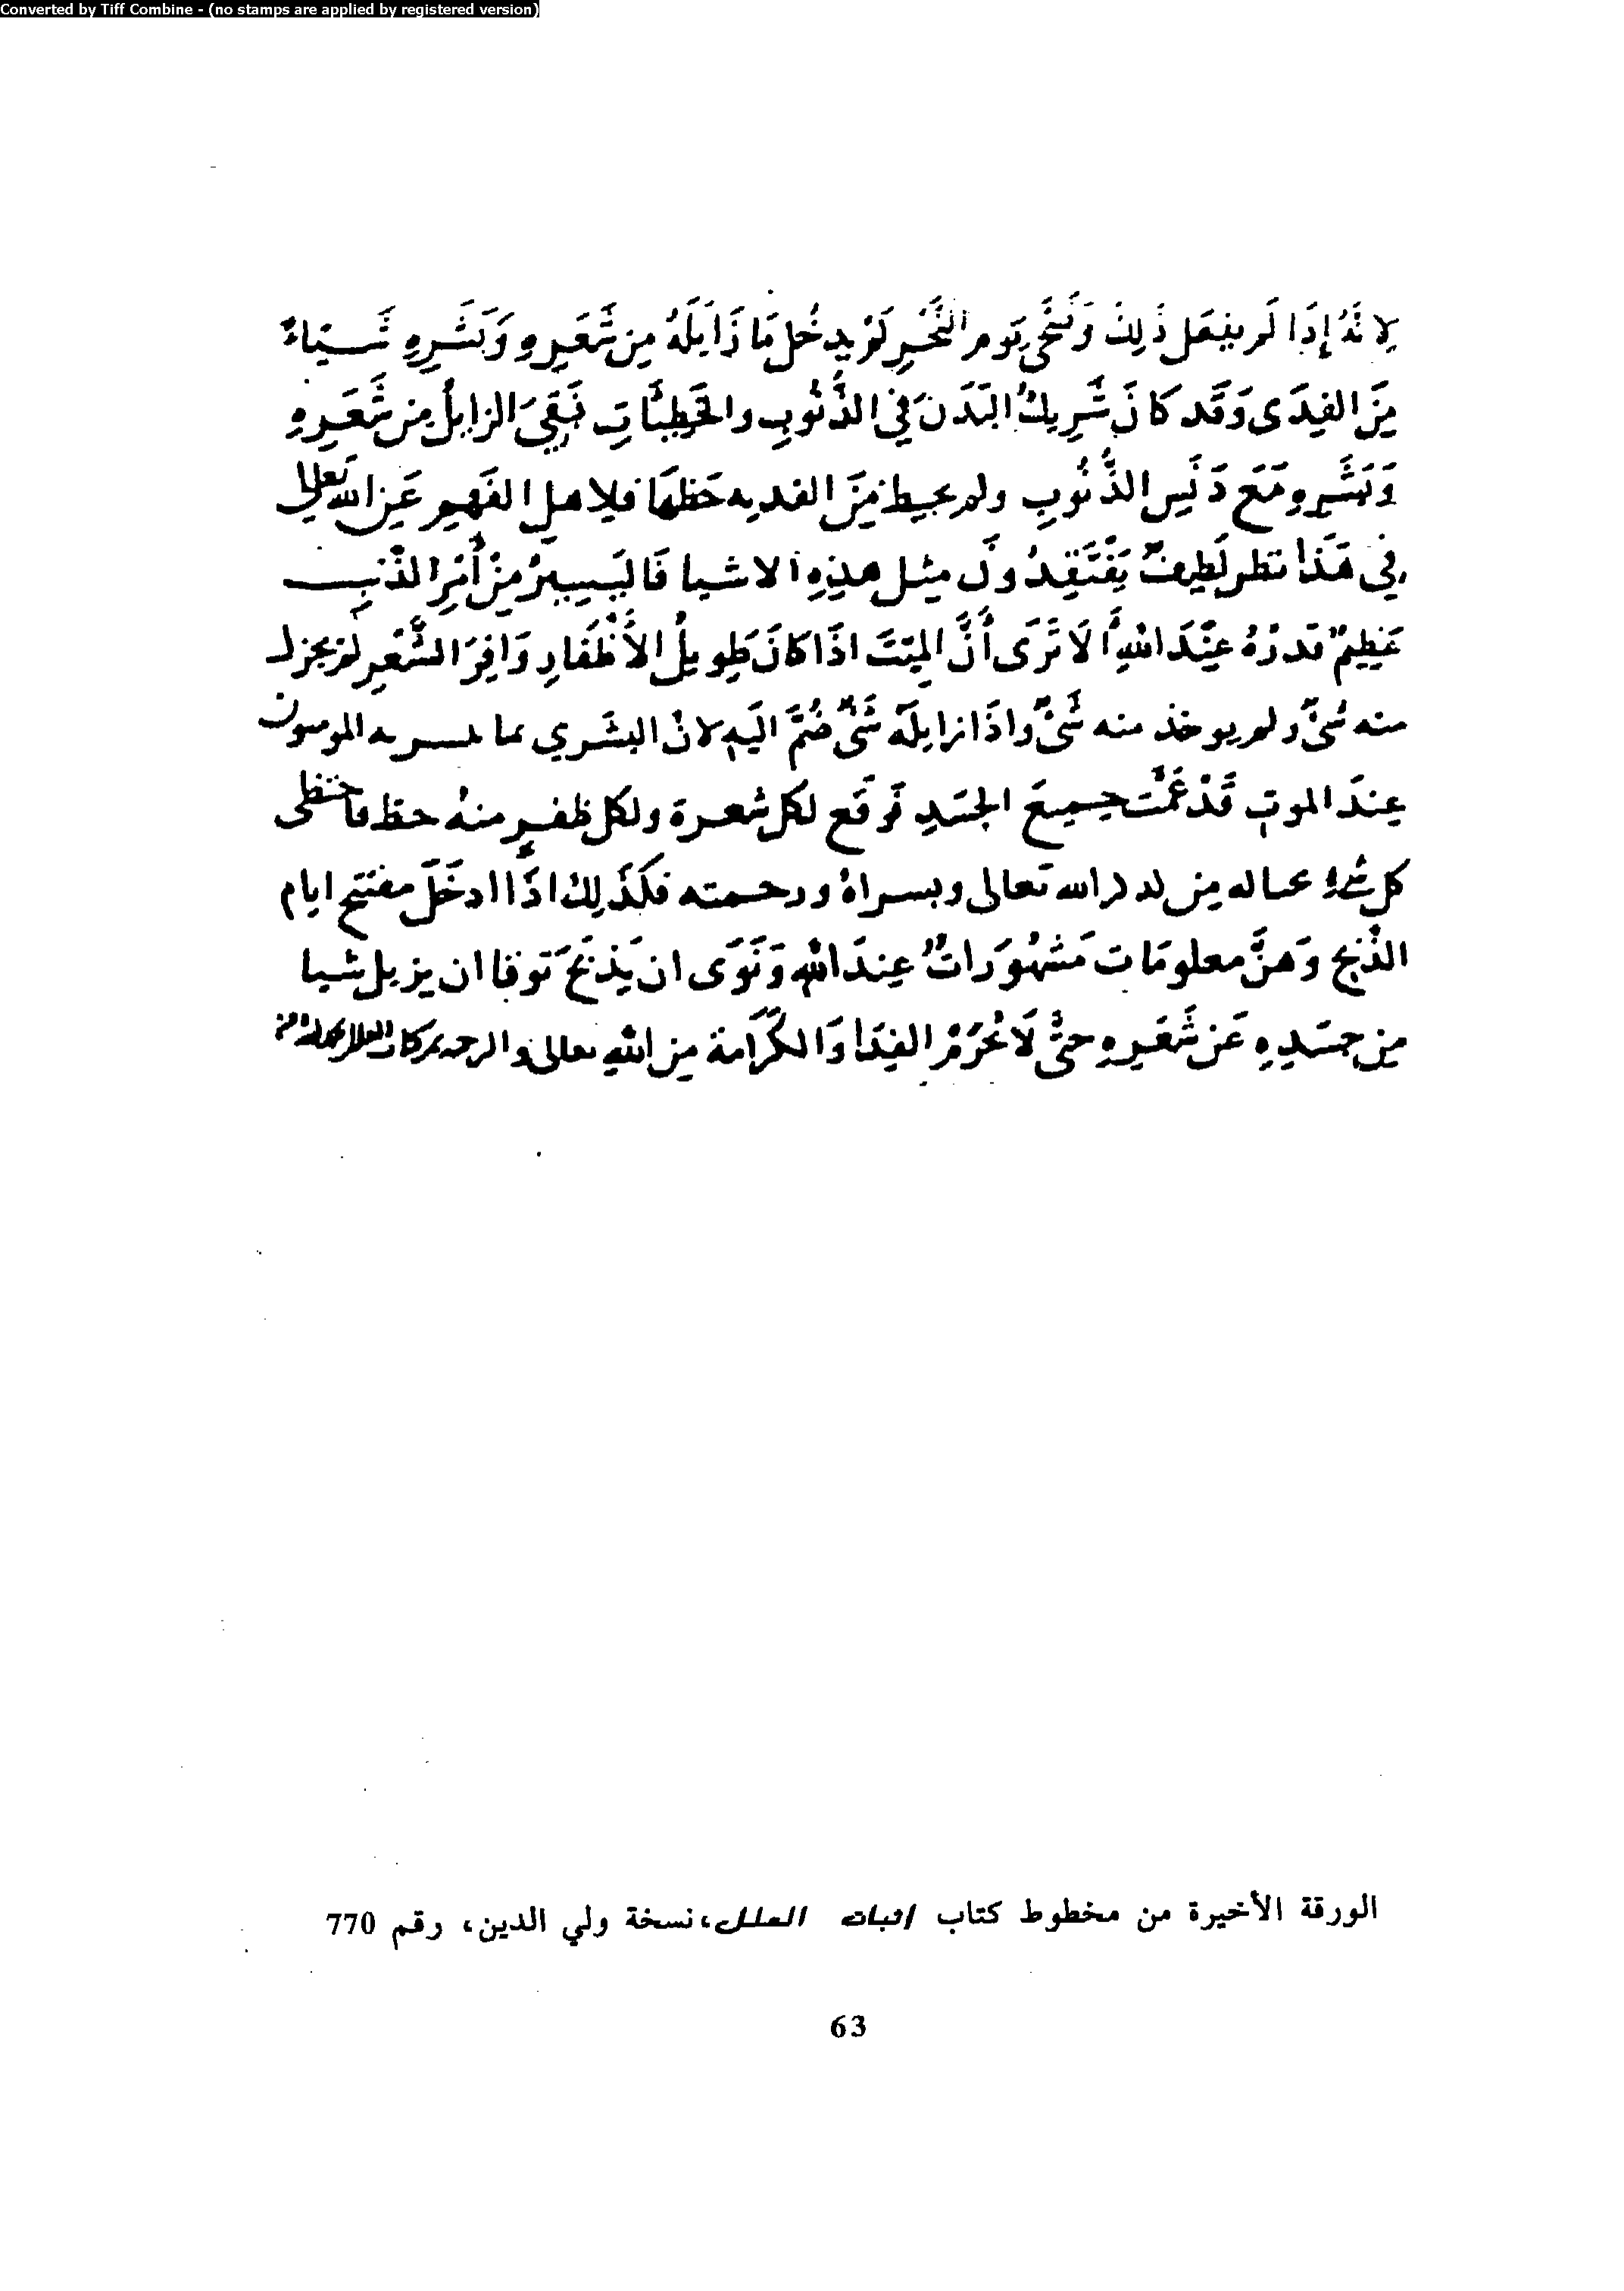 Converted by Tiff Combine - (no stamps are applied by registered version)
لِانَّهُ إِذَا لَم يفعَل ذَلِكَ وَضَحَّى يَوم النَّحْرِ لَمْ يدخُل مَا زَايَلَهُ مِن شَعَرِهِ وَبَشَرِهِ شَيْاءً
مِنَ الفِدَى وَقَد كَانَ شَرِيكُ البَدَنَ فِي الذُّنُوبِ والخَطِيئَاتِ فَبَقِيَ الزايلُ مِن شَعَرِهِ
وَبَشَرِهِ مَعَ دَنَسِ الذُّنُوبِ ولم يحط مِنَ الفديه حَظهَا فلاهلِ الفَهمِ عَنِ الله تعالى
فِي هَذَا نظر لَطِيفٌ يَفْتَقِدُونَ مِثل هذِهِ الاشيا فَاليَسِيرُ مِنْ أَثَرِ الذَّنبِ
عَظِيمٌ قدرُهُ عِنْدَ اللهِ أَلَا تَرَى أَنَّ الميّتَ اذَا كَانَ طَوِيلُ الأَظْفَارِ وَافِرَ الشَّعْرِ لم يجز
منه شَيْءٌ ولم يوخذ منه شَيْءٌ واذَا زايلَهُ شَيْءٌ ضُمَّ اليَهِ لانُ البشَري بما الموسون
عِندَ الموتِ قَدْ عَمَّتْ جميعَ الجَسَدِ فَوَقَع لكل شعرة ولكل ظفرٍ منهُ حظ فاحتظى
كل شَيْءٍ بحاله مِن الله تعالى وبسراهُ ورحمته فكَذَلِكَ اذَا ادخَلَ مفتتح ايام
الذَّبح وَهنَّ معلومَات مَشهُورَاتٌ عِندَ اللهِ وَنَوَى ان يَذبَحَ تَوقا ان يزيل شيا
مِن جسَدِهِ عَن شَعَرِهِ حتَّى لَا يُحْرَمُ الفِدَا وَالكَرَامَة مِن اللهِ تعالى والرحمه
الورقة الأخيرة من مخطوط كتاب اثبات العلل، نسخة ولي الدين، رقم 770
63